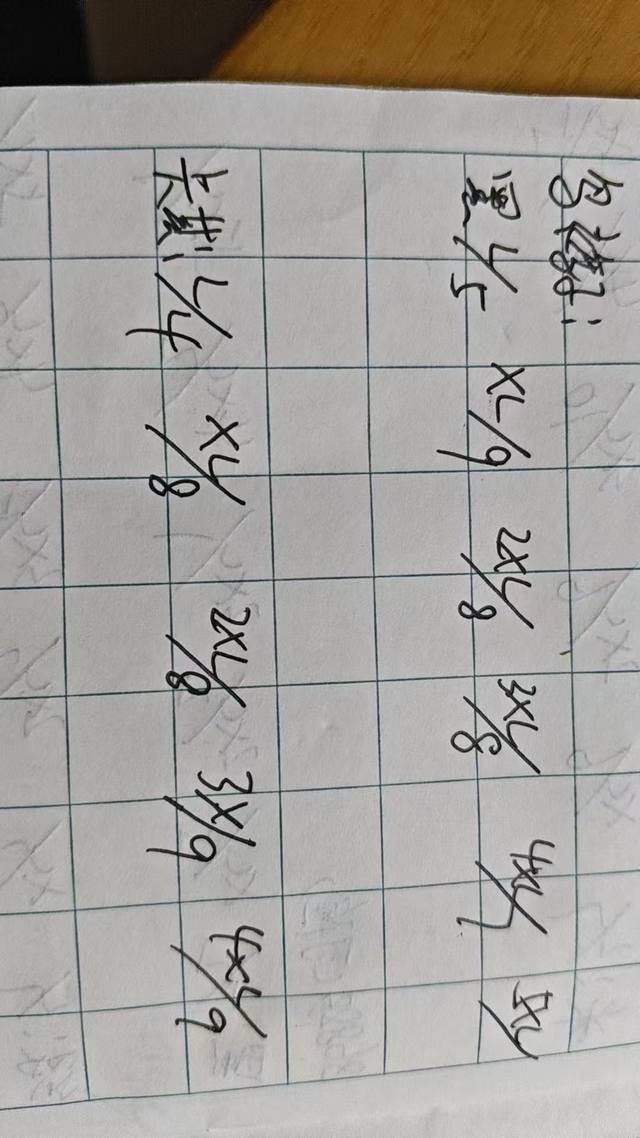 黑 L/5 XL/9 2XL/8 3XL/8 4XL/1 5XL/
L/4 XL/8 2XL/8 3XL/9 4XL/9